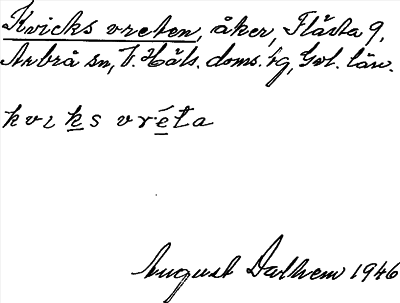 Kvicks vreten, åker, Flästa 9,
Arbrå sn, V. Häls. doms. sg, Gvl. län.
kvɩks vréta
August Dalhem 1946